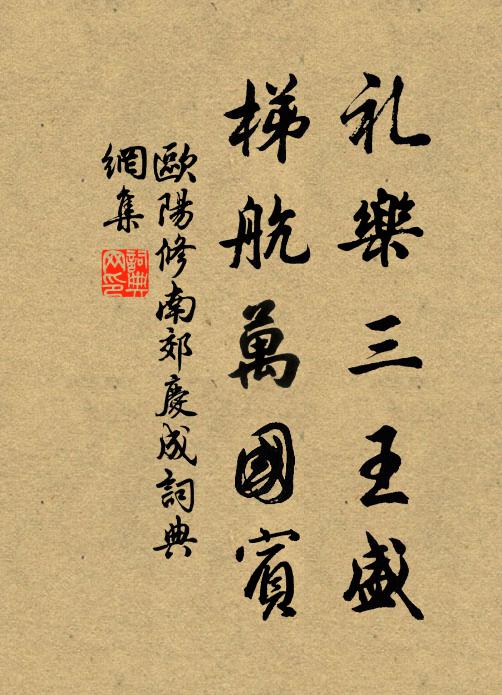 礼樂三王盛
梯航萬國賓
歐陽修南郊慶成詞典
網集
詞典網印